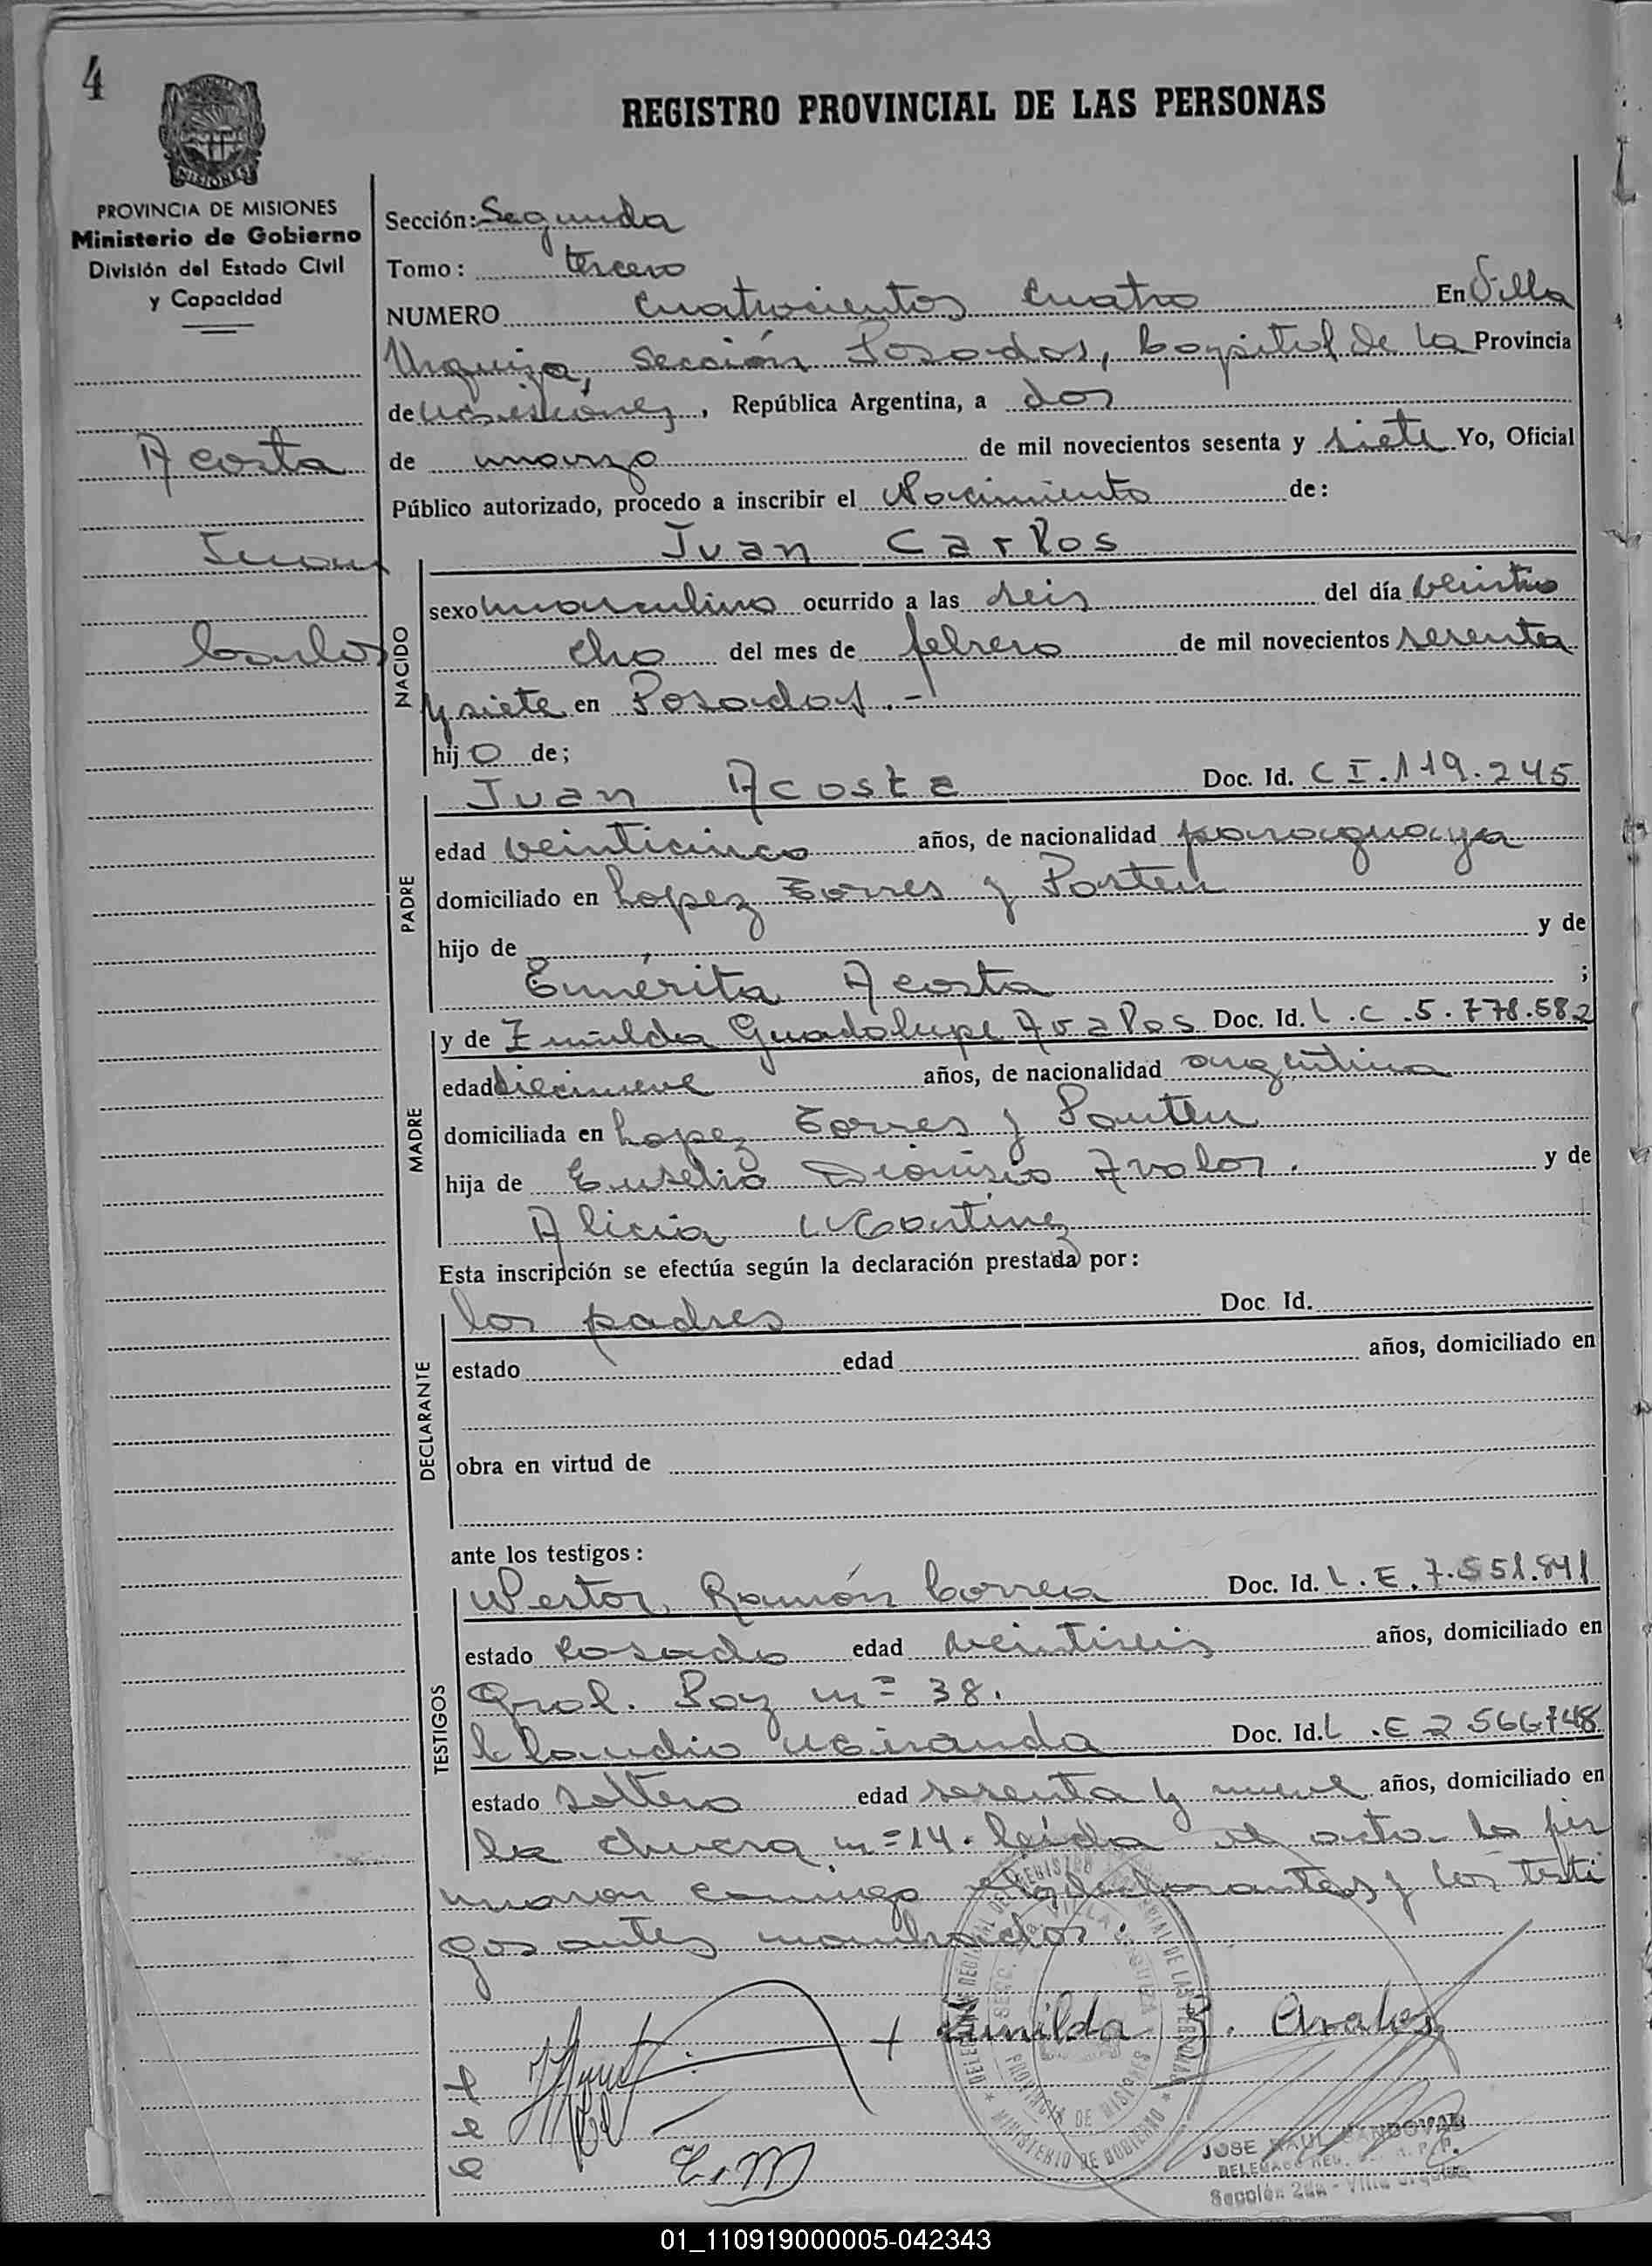 4
REGISTRO PROVINCIAL DE LAS PERSONAS
MISIONES
PROVINCIA DE MISIONES
Ministerio de Gobierno
División del Estado Civil
y Capacidad
Acosta
Juan
Carlos
Sección: Segunda
Tomo: tercero
NUMERO cuatrocientos cuatro En Villa
Urquiza, sección Posadas, Capital de la Provincia
de Misiones, República Argentina, a dos
de marzo de mil novecientos sesenta y siete Yo, Oficial
Público autorizado, procedo a inscribir el Nacimiento de:
Juan Carlos
NACIDO
sexo masculino ocurrido a las seis del día veintio
cho del mes de febrero de mil novecientos sesenta
y siete en Posadas.-
hijo de;
PADRE
Juan Acosta Doc. Id. C I. 119.245
edad veinticinco años, de nacionalidad paraguaya
domiciliado en Lopez Torres y
hijo de y de
Emérita Acosta ;
MADRE
y de Guadalupe Avalos Doc. Id. L.C.5.778.582
edad diecinueve años, de nacionalidad argentina
domiciliada en Lopez Torres y
hija de Dionisio Avalos. y de
Alicia Martinez
Esta inscripción se efectúa según la declaración prestada por:
DECLARANTE
los padres Doc. Id.
estado edad años, domiciliado en
obra en virtud de
ante los testigos:
TESTIGOS
Nestor Ramón Correa Doc. Id. L.E. 7.551.841
estado casado edad veintiseis años, domiciliado en
Gral. Paz nº 38.
Claudio Miranda Doc. Id. L.E 2566748
estado soltero edad sesenta y nueve años, domiciliado en
La chacra nº 14. leída el acta la fir
maron conmigo los declarantes y los testi
gos antes nombrados.
+ Avalos
C.M
MINISTERIO DE GOBIERNO
PROVINCIA DE MISIONES
JOSE RAUL SANDOVAL
Sección 2da - Villa Urquiza
01_110919000005-042343